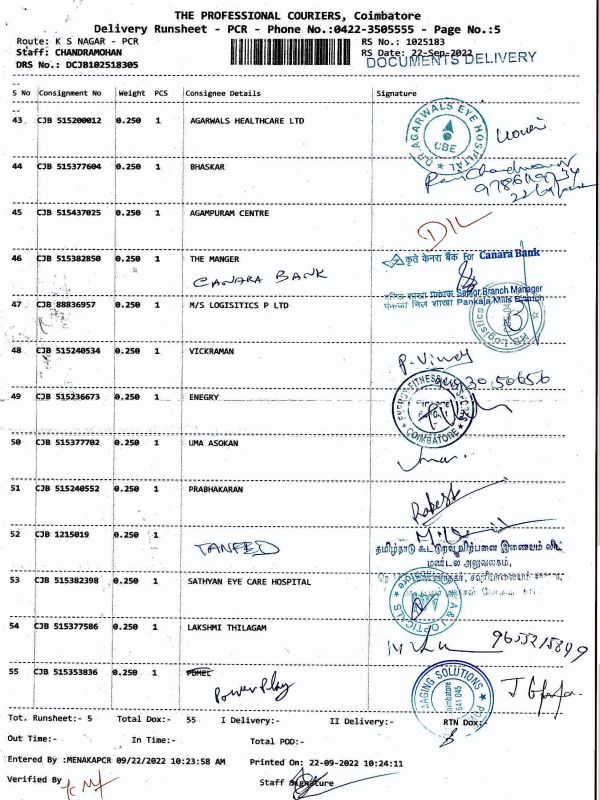 THE PROFESSIONAL COURIERS, Coimbatore
Delivery Runsheet - PCR - Phone No.:0422-3505555 - Page No.:5
Route: K S NAGAR - PCR RS No.: 1025183
Staff: CHANDRAMOHAN RS Date: 22-Sep-2022
DRS No.: DCJB102518305 DOCUMENTS DELIVERY
S No Consignment No Weight PCS Consignee Details Signature
43 CJB 515200012 0.250 1 AGARWALS HEALTHCARE LTD
DR.AGARWALS EYE HOSPITAL CBE
44 CJB 515377604 0.250 1 BHASKAR
45 CJB 515437025 0.250 1 AGAMPURAM CENTRE
46 CJB 515382850 0.250 1 THE MANGER
CANARA BANK
कृते केनरा बैंक For Canara Bank
Senior Branch Manager
Pankaja Mills Branch
47 CJB 88836957 0.250 1 M/S LOGISITICS P LTD
48 CJB 515240534 0.250 1 VICKRAMAN
49 CJB 515236673 0.250 1 ENEGRY
COIMBATORE
50 CJB 515377702 0.250 1 UMA ASOKAN
51 CJB 515240552 0.250 1 PRABHAKARAN
52 CJB 1215019 0.250 1
TANFED
தமிழ்நாடு கூட்டுறவு விற்பனை இணையம் லிட்
மண்டல அலுவலகம்,
53 CJB 515382398 0.250 1 SATHYAN EYE CARE HOSPITAL
A & J OPTICALS
54 CJB 515377586 0.250 1 LAKSHMI THILAGAM
9655215899
55 CJB 515353836 0.250 1
Power Play
Tot. Runsheet:- 5 Total Dox:- 55 I Delivery:- II Delivery:- RTN Dox:-
Out Time:- In Time:- Total POD:-
Entered By :MENAKAPCR 09/22/2022 10:23:58 AM Printed On: 22-09-2022 10:24:11
Verified By Staff Signature